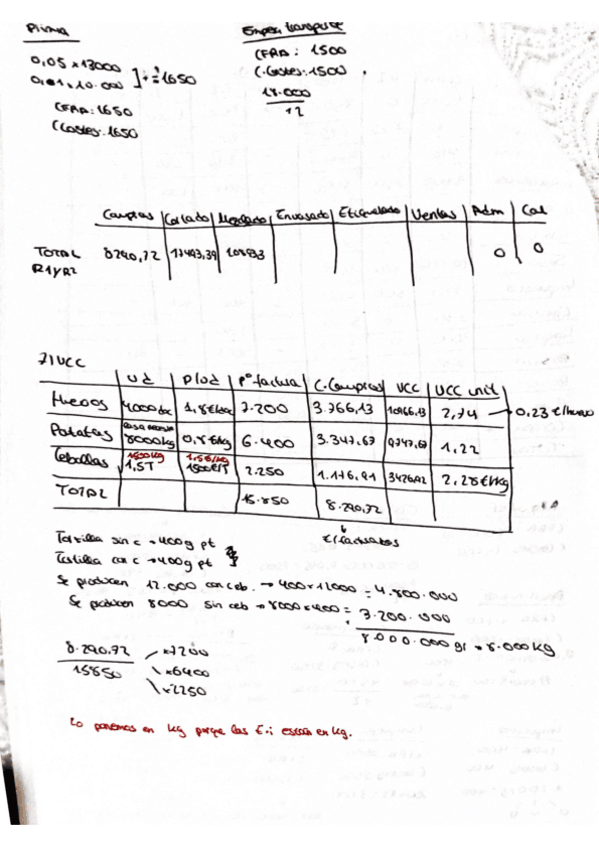 Prima
0,05 x 13000
0,01 x 10.000 ] + = 1650
CFRA: 1650
C Costes: 1650
Empresa transporte
CFRA: 1500
C. Costes: 1500
18.000
÷12
Compras | Cortado | Mezclado | Envasado | Etiquetado | Ventas | Adm | Cal
TOTAL 8290,72 0 0
R1 y R2
7) UCC
Ud | P/Ud | Pº factura | C. Compras | UCC | UCC unit
Huevos | 4000doc | 1,8€/doc | 7.200 | 3.766,13 | 10966,13 | 2,74 → 0,23 €/huevo
Patatas | 8000kg | 0,8€/kg | 6.400 | 3.347,67 | 9747,67 | 1,22
Cebollas | 1500kg 1,5T | 1,5€/kg | 2.250 | 1.176,91 | 3426,92 | 2,28€/kg
TOTAL | 15.850 | 8.290,72
Tortilla sin c → 400g pt
Tortilla con c → 400g pt
Se producen 12.000 con ceb. → 400 x 12000 = 4.800.000
Se producen 8000 sin ceb → 8000 x 400 = 3.200.000
8.000.000 gr → 8.000 kg
8.290,72 x7200
15850 x6400
x2250
Lo ponemos en kg porque las E.i están en kg.